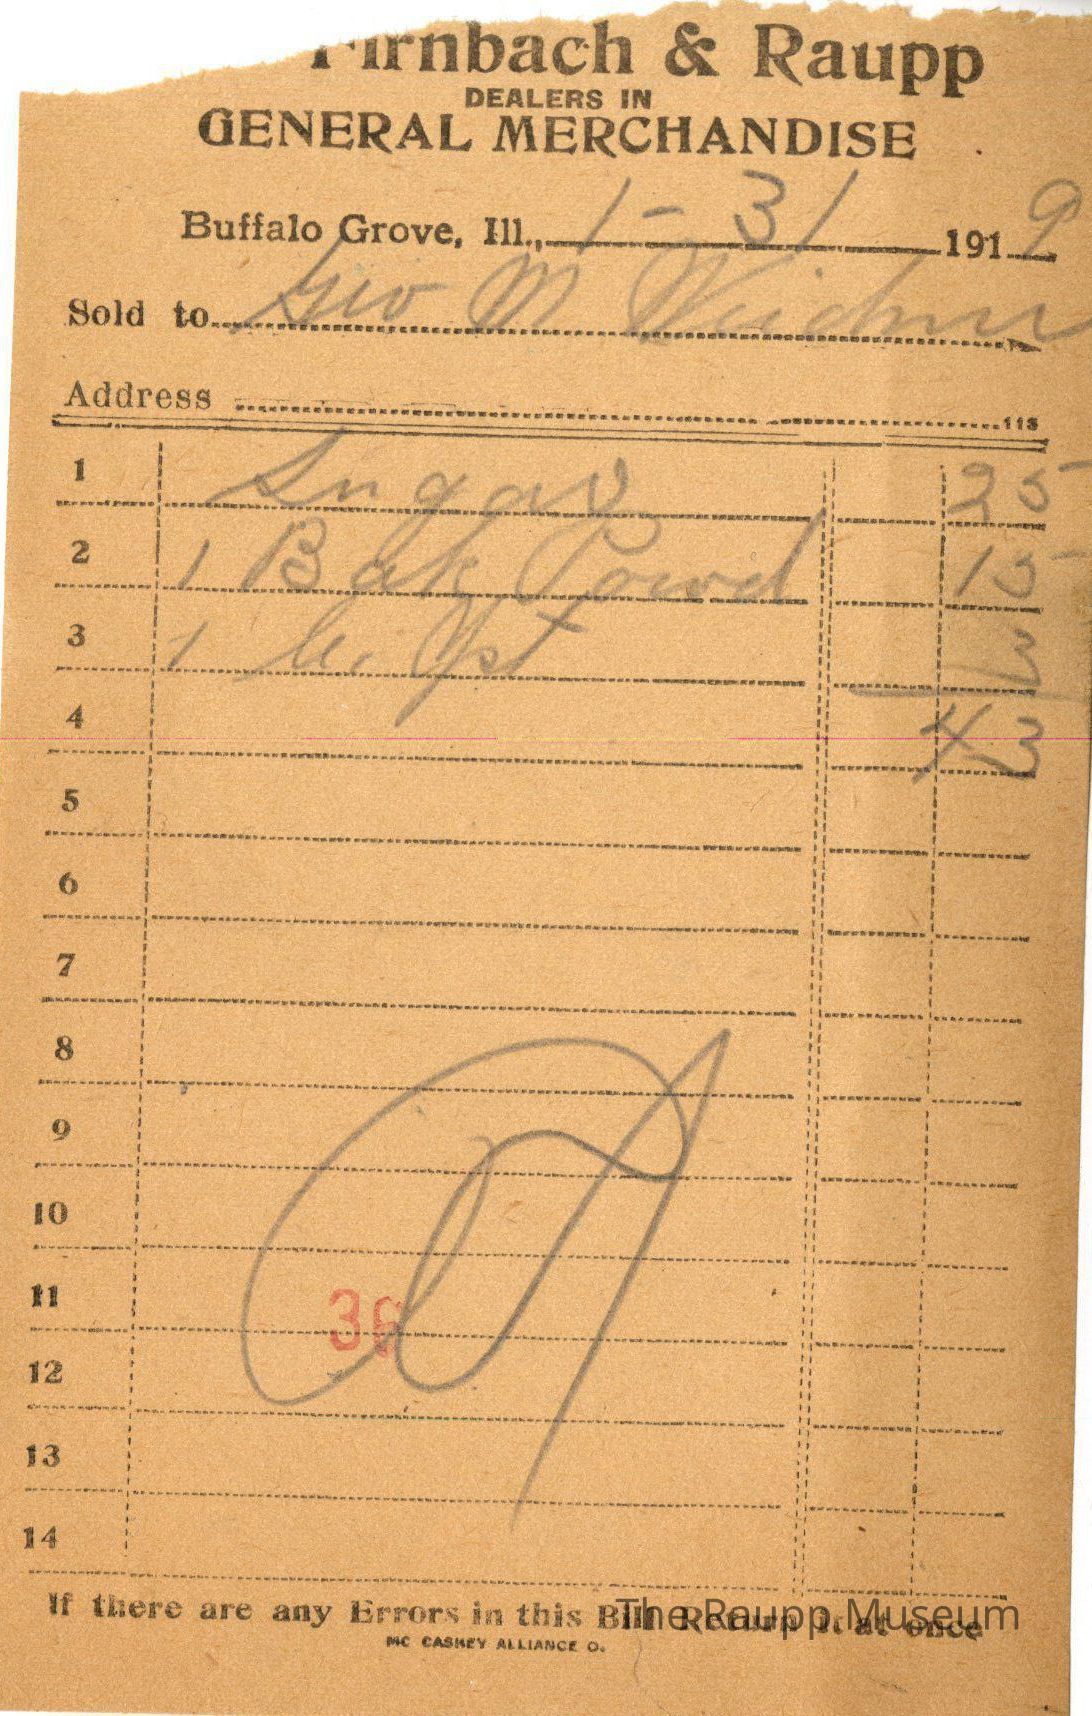 Firnbach & Raupp
DEALERS IN
GENERAL MERCHANDISE
Buffalo Grove, Ill., 1-31 1919
Sold to Geo M Weidner
Address
113
1 Sugar 25
2 1 Bak Powd 15
3 1 3
4 43
5
6
7
8
9
10
11
36
12
13
14
If there are any Errors in this Bill Return it at once
The Raupp Museum
MC CASKEY ALLIANCE O.